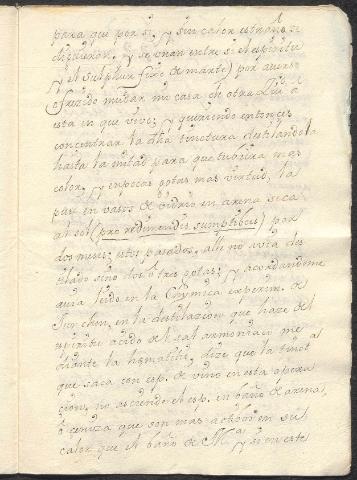 para que por si, y sin calor estraño se
digirieron, y se unan entre si el espiritu
y el sulphur fixo de marte) por averse
ofrecido mudar mi casa de otra Lui à
esta in que vivo; y queriendo entonces
concentrar la dha tinctura destilandola
hasta la mitad para que tubiera mas
calor, y en pocas gotas mas virtud, la
puse en vasos de vidrio en arena seca
al sol (pro redimendis sumptibus) por
dos meses; estos pasados, alli no avia des
tilado sino dos ò tres gotas; y acordandome
avia leido en la Chymica experim. de
Junchen, en la destilacion que haze del
espiritu acido de el sal armoniaco me
diante la hematites, dize que la tinct.
que saca con esp. de vino en esta opera
cion, no asciende el esp. en baño de arena,
ò ceniza que son mas activos en su
calor que el baño de M.ª y si en este